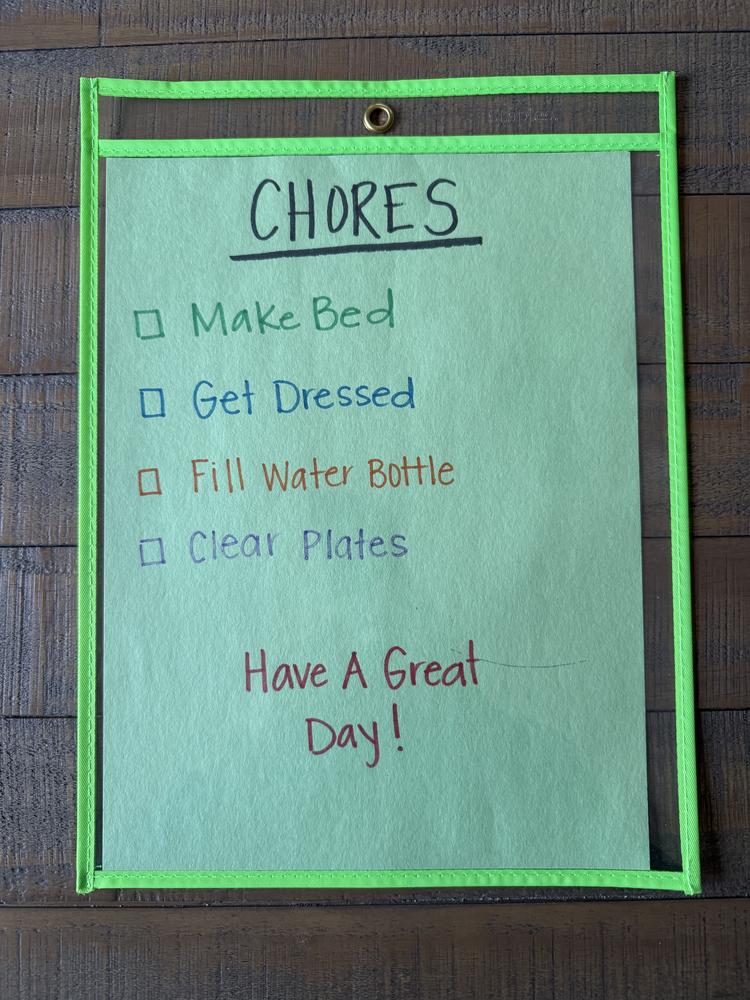 CHORES
☐ Make Bed
☐ Get Dressed
☐ Fill Water Bottle
☐ Clear Plates
Have A Great
Day!